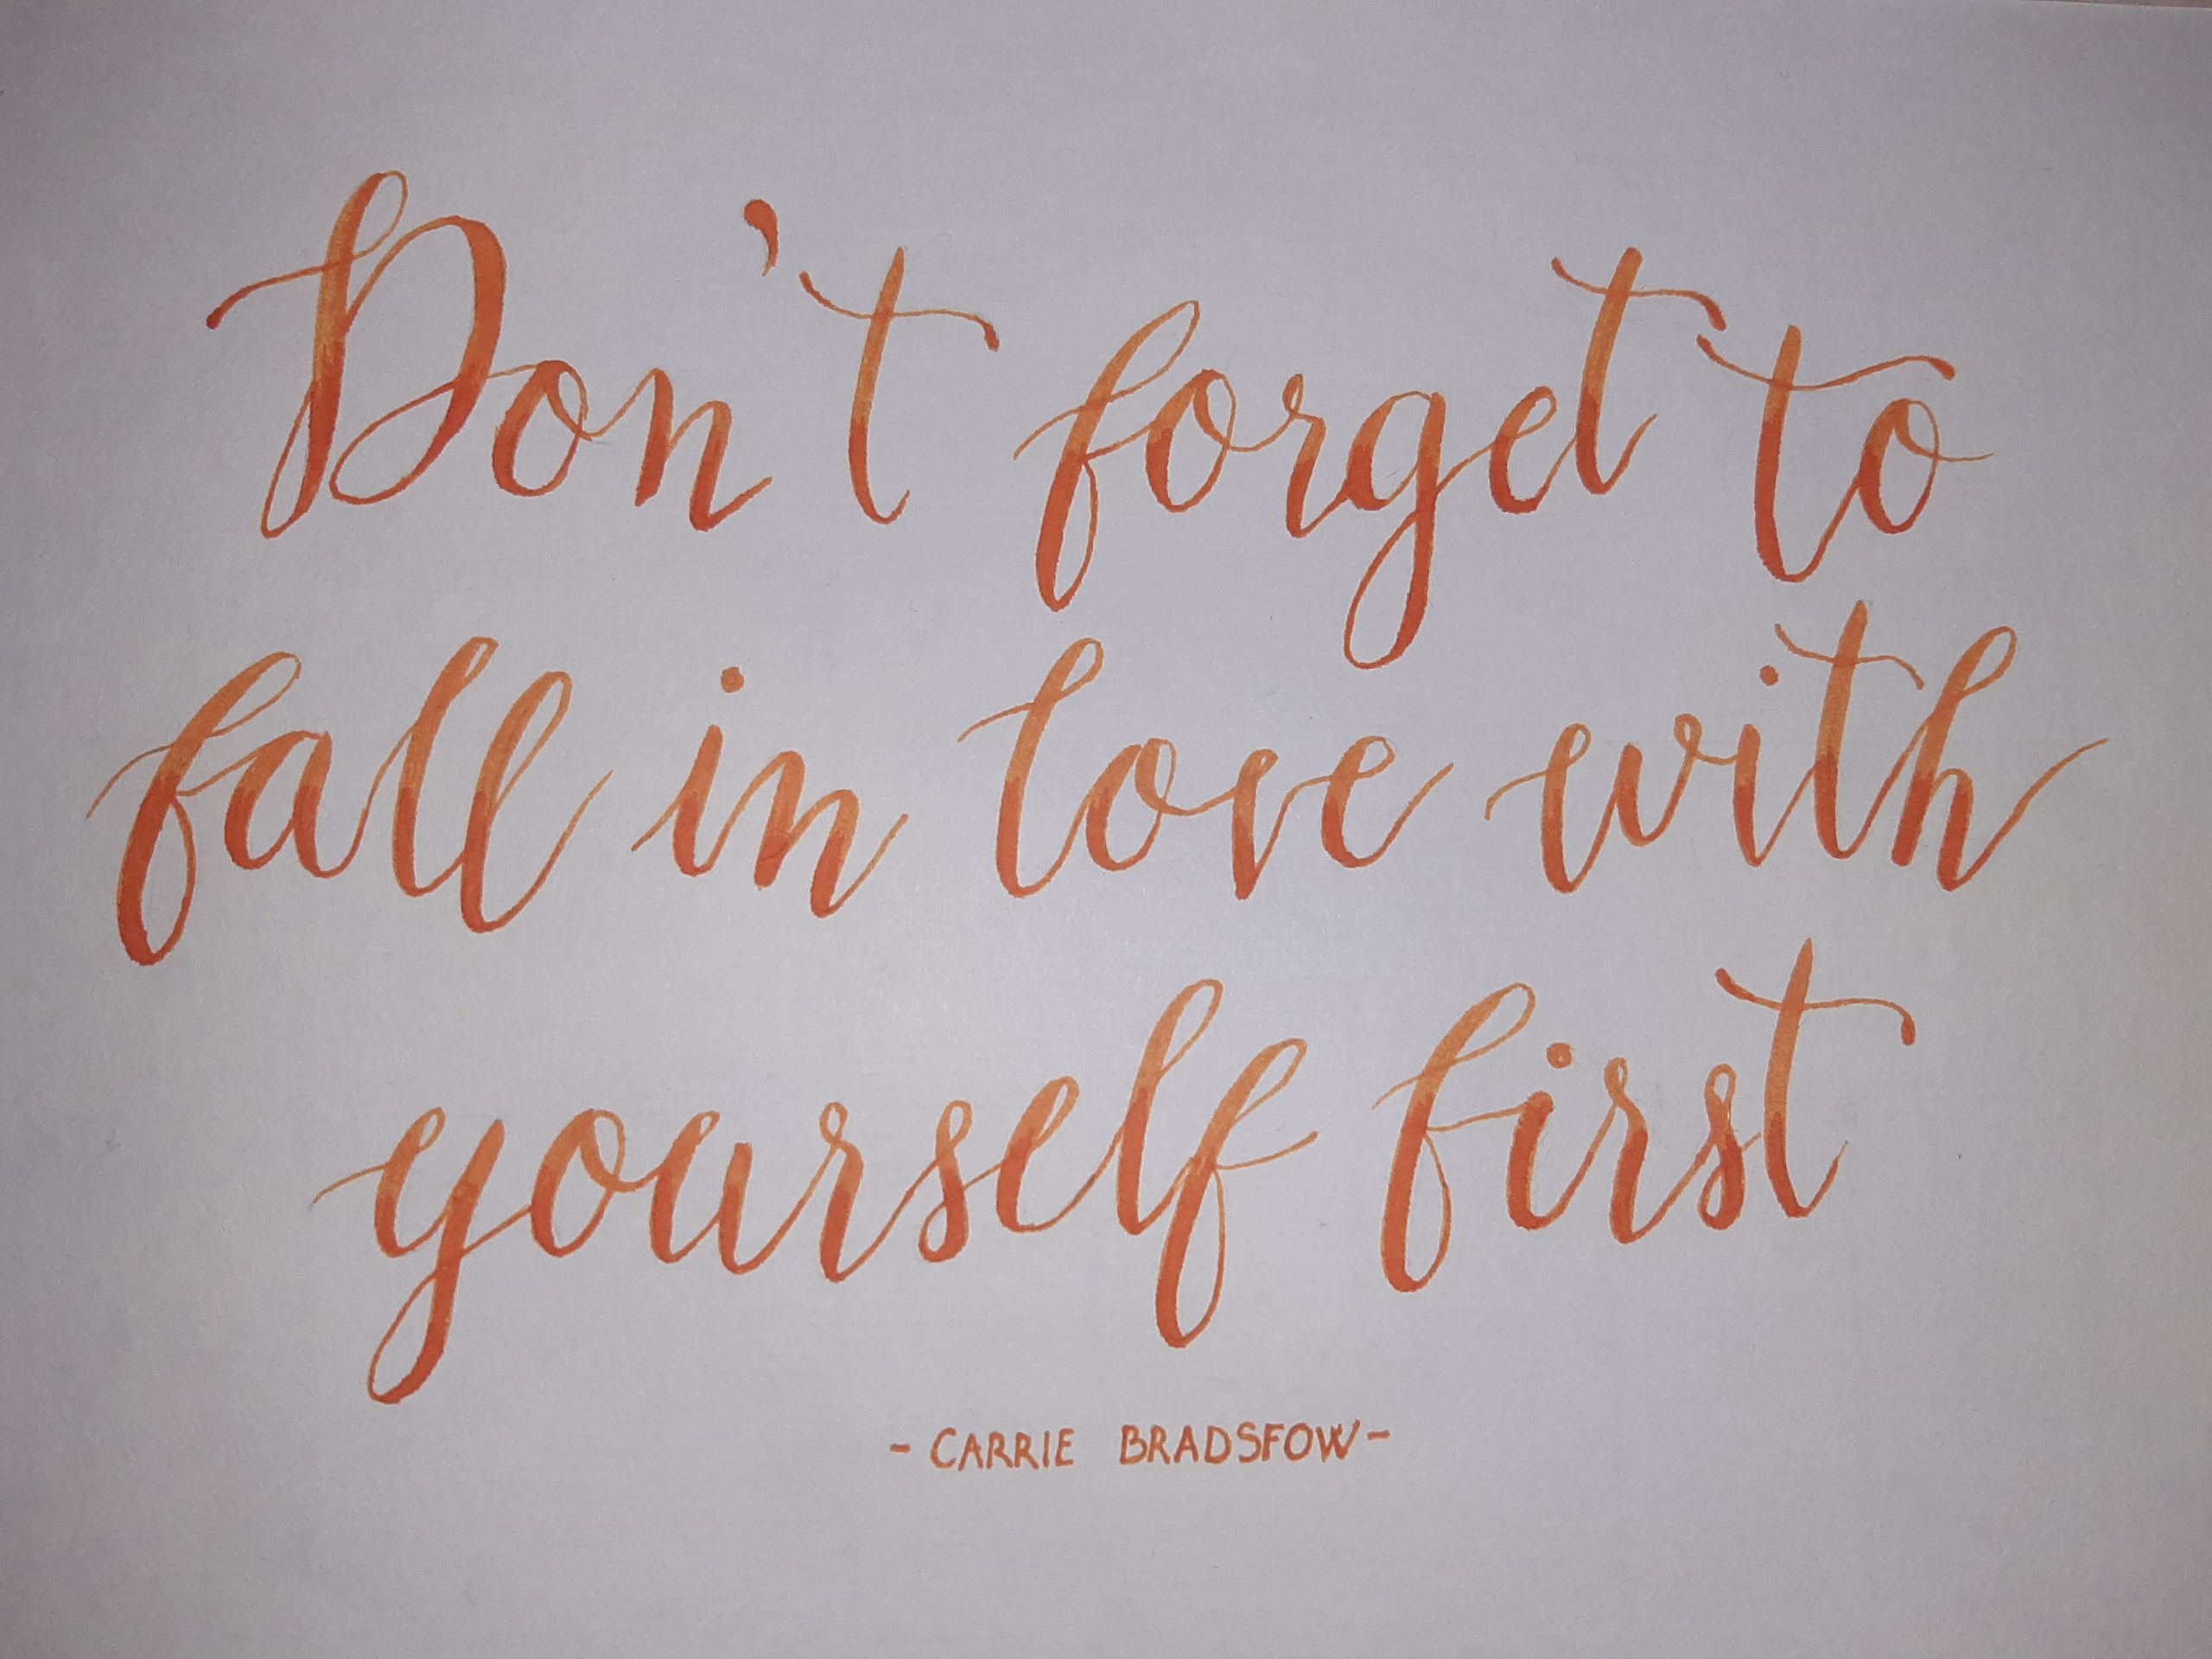 Don't forget to
fall in love with
yourself first
- CARRIE BRADSFOW -